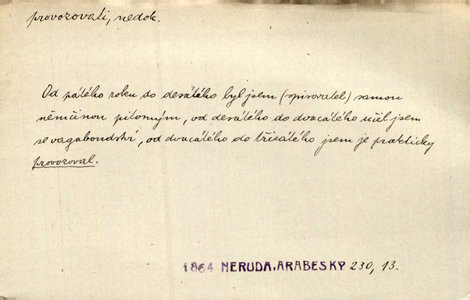 provozovati, nedok.
Od pátého roku do desátého byl jsem (spisovatel) samou
němčinou pitomým, od desátého do dvacátého učil jsem
se vagabondství, od dvacátého do třicátého jsem je prakticky
provozoval.
1864 NERUDA, ARABESKY 230, 13.